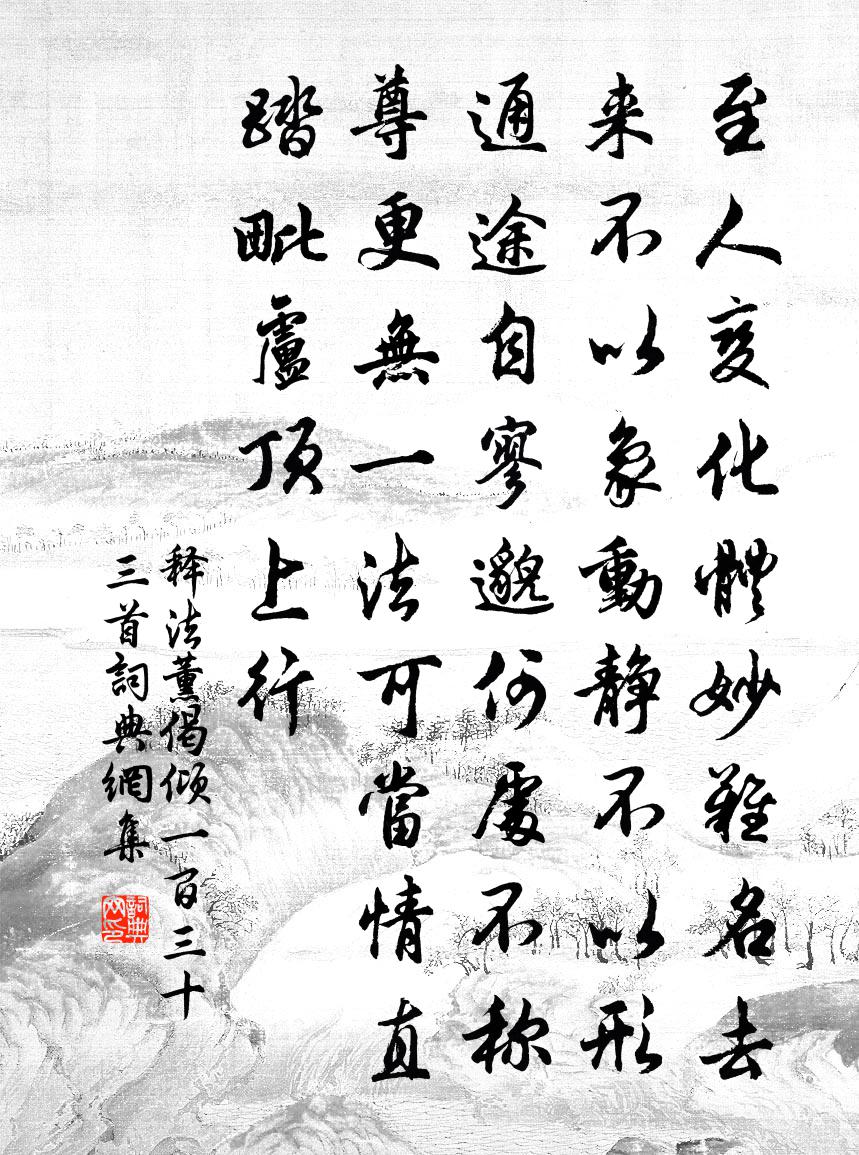 至人变化體妙難名去
来不以象動静不以形
通途自寥邈何處不称
尊更無一法可當情直
踏毗盧頂上行
释法薰偈倾一百三十
三首詞典網集
詞典网印